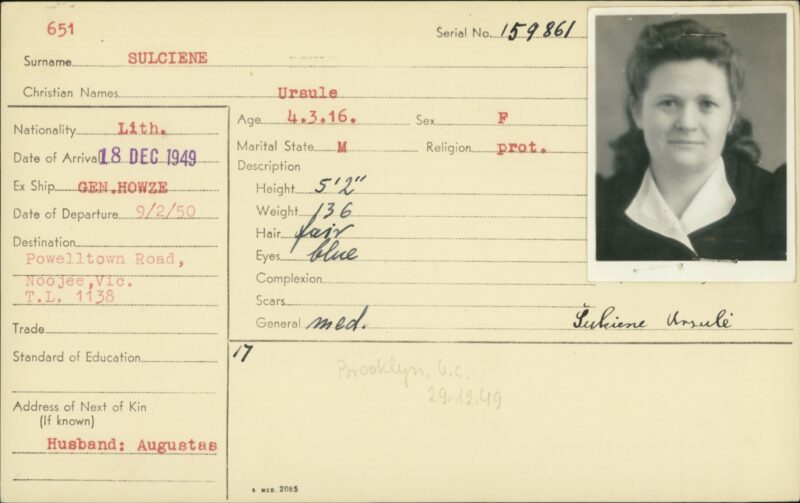 651
Serial No. 159861
Surname SULCIENE
Christian Names Ursule
Nationality Lith.
Age 4.3.16. Sex F
Date of Arrival 18 DEC 1949
Marital State M Religion prot.
Description
Ex Ship GEN.HOWZE
Height 5'2"
Date of Departure 9/2/50
Weight 136
Hair fair
Destination
Powelltown Road,
Noojee,Vic.
T.L. 1138
Eyes blue
Complexion
Scars
Trade
General med.
Sulciene Ursulė
Standard of Education
17
Brooklyn. Vic.
29.12.49
Address of Next of Kin
(If known)
Husband: Augustas
S MCD. 2085